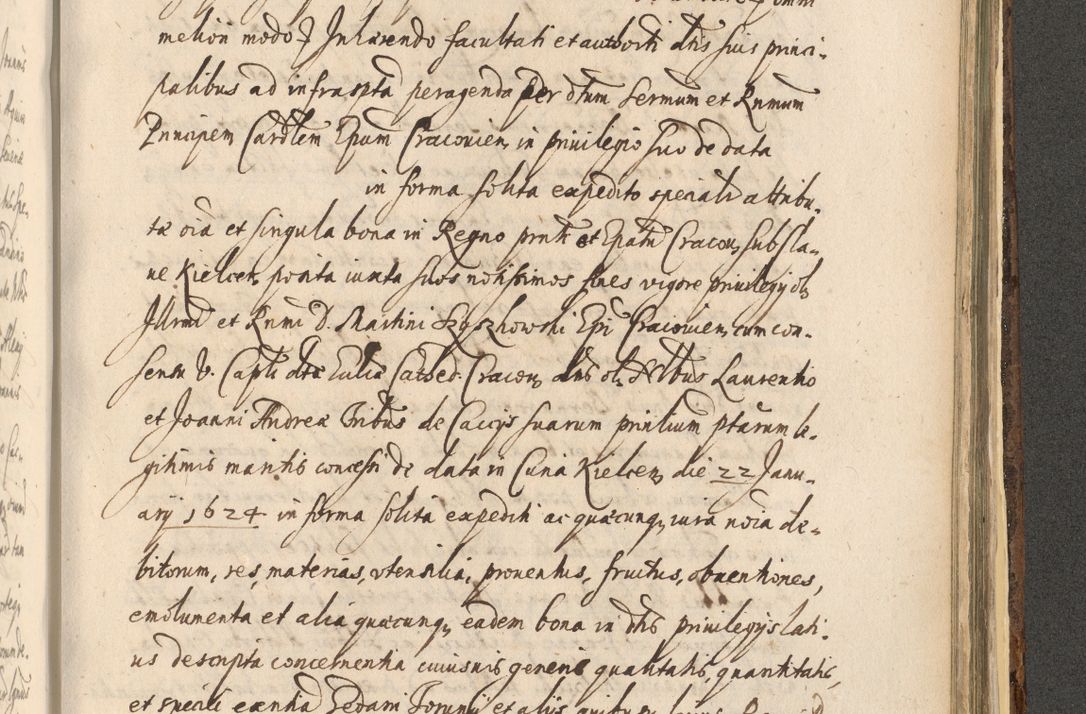 melion modo et Inhærendo facultati et authorti dtis suis princi-
palibus ad infrasptā peragenda per dtum Sermum et Rnmum
Principem Cardlem Epum Cracouien in priuilegio suo de data
in forma solita expedito speciali attribu-
tæ oīa et singula bona in Regno prnti et Epatu Cracou, substa-
ue Kielcen, posita iuxta suos notissimos fines vigore priuilegij olᵢ
Illrmi et Rnmi D. Martini Szyszkowski Epi Cracouien, cum con-
sensu V. Capli dtæ Eccliæ Cathed. Cracou, dnis olᵢ Nlbus Laurentio
et Joanni Andreæ fribus de Caccijs suarum prinlium ptarum le-
gitimis maritis concessi de data in Curia Kielcen, die 22 Janu-
arij 1624 in forma solita expediti ac quæcunqᵢ iura noīa de-
bitorum, res, materias, vtensilia, prouentus, fructus, obuentiones,
emolumenta et alia quæcunqᵢ eadem bona in dtis priuilegijs lati-
us descripta concernentia cuiusuis generis qualitatis, quantitatis,
et speciei